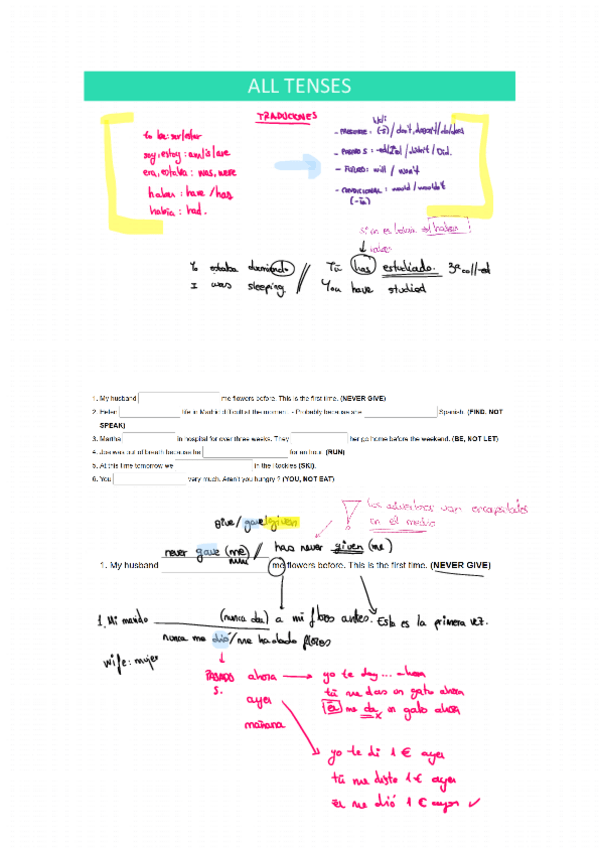 ALL TENSES
TRADUCCIONES
to be: ser/estar
soy, estoy: am/is/are
era, estaba: was, were
haber: have/has
había: had.
- PRESENTE: (-s)/don't, doesn't/do/does
- PASADO S: -ed/2ªcol/didn't/Did.
- FUTURO: will / won't
- CONDICIONAL: would/wouldn't
(-ía)
Yo estaba durmiendo // Tú has estudiado. 3ª col/-ed
I was sleeping. // You have studied
1. My husband me flowers before. This is the first time. (NEVER GIVE)
2. Helen life in Madrid difficult at the moment. - Probably because she Spanish. (FIND, NOT
SPEAK)
3. Martha in hospital for over three weeks. They her go home before the weekend. (BE, NOT LET)
4. Joe was out of breath because he for an hour. (RUN)
5. At this time tomorrow we in the Rockies (SKI).
6. You very much. Aren't you hungry ? (YOU, NOT EAT)
los adverbios van encapsulados
en el medio
give/gave/given
never gave (me) // has never given (me)
1. My husband me flowers before. This is the first time. (NEVER GIVE)
1. Mi marido (nunca dar) a mi flores antes. Esta es la primera vez.
nunca me dió/me ha dado flores
wife: mujer
PASADO ahora yo te doy ... ahora
S. tú me das un gato ahora
ayer Él me da un gato ahora
mañana
yo te di 1 € ayer
tú me diste 1 € ayer
Él me dió 1 € ayer ✓